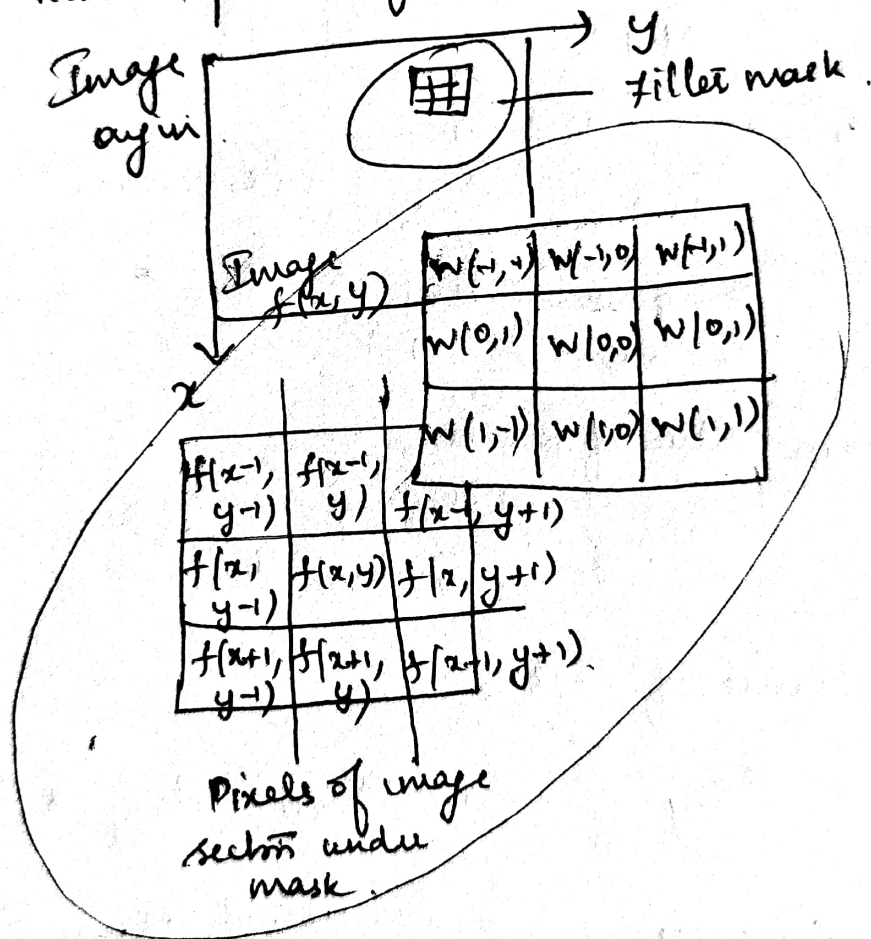 y
Image
origin
filter mask.
Image
f(x, y)
x
W(-1,-1) W(-1,0) W(-1,1)
W(0,1) W(0,0) W(0,1)
W(1,-1) W(1,0) W(1,1)
f(x-1, f(x-1,
y-1) y) f(x-1, y+1)
f(x, f(x,y) f(x, y+1)
y-1)
f(x+1, f(x+1, f(x+1, y+1).
y-1) y)
Pixels of image
section under
mask.